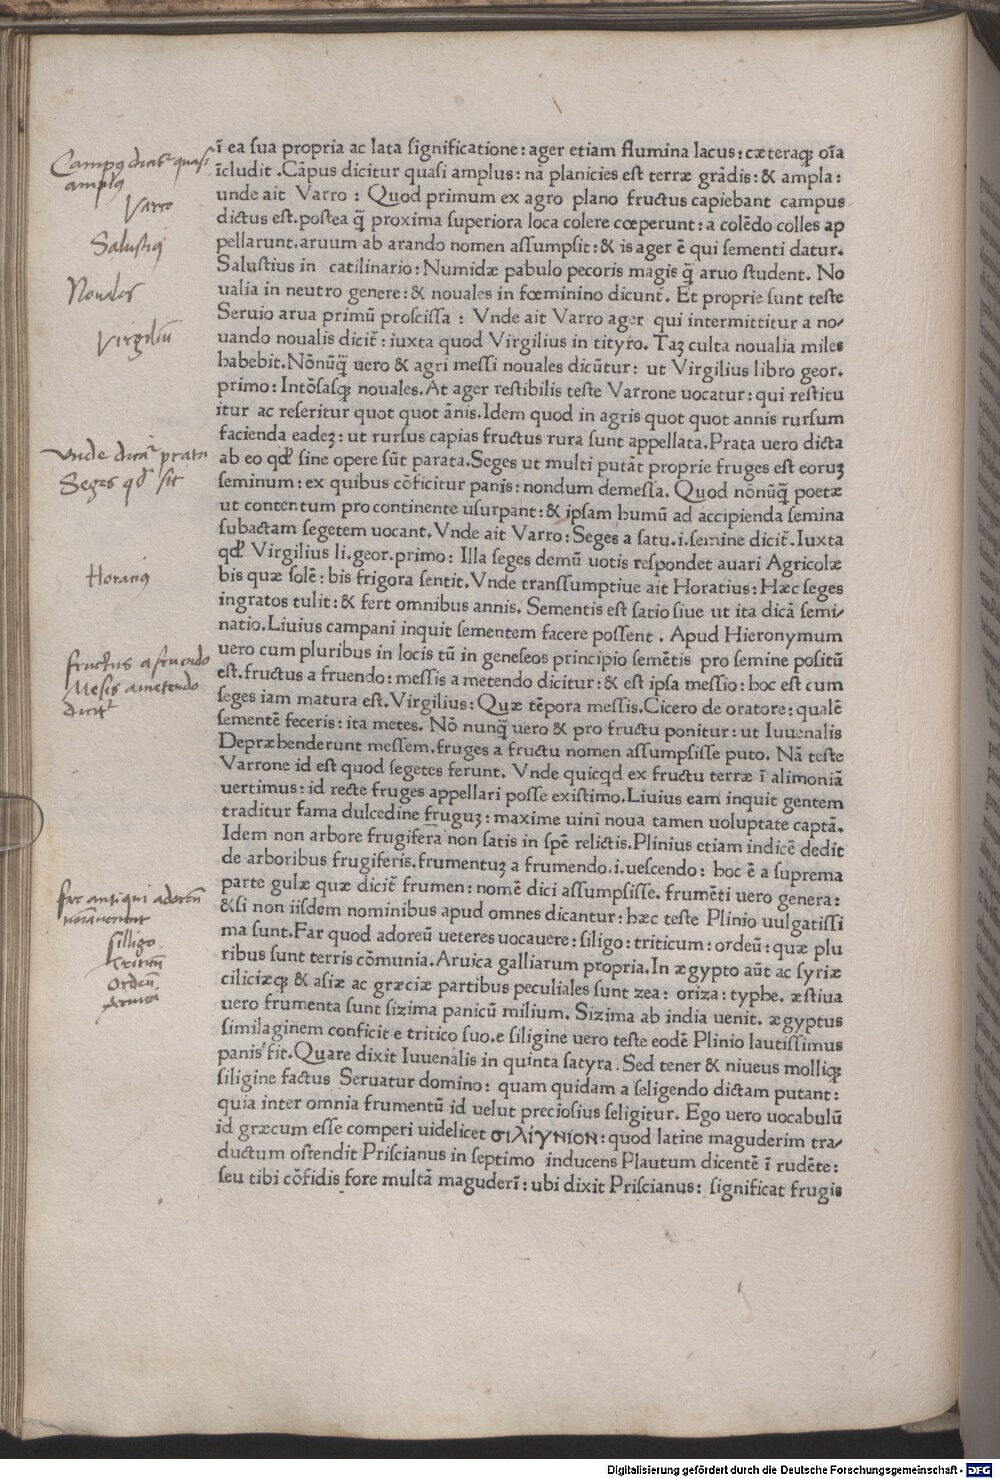 Campꝰ dicitͬ quasi
amplꝰ
Varro
Salustiꝰ
Nouales
Virgiliū
Vnde dicūtͬ prata
Seges qd̓ sit
Horatiꝰ
fructus a fruendo
Messis a metendo
dicitͬ
far antiqui adoreū
uocauerunt
silligo
triticū
Ordeū
Aruica
ī ea ſua propria ac lata ſignificatione: ager etiam flumina lacus: cæteraqꝫ oīa
īcludit .Cāpus dicitur quaſi amplus: nā planicies eſt terræ grādis: & ampla:
unde ait Varro : Quod primum ex agro plano fructus capiebant campus
dictus eſt. poſtea q̄ proxima ſuperiora loca colere cœperunt: a colēdo colles ap
pellarunt. aruum ab arando nomen aſſumpſit: & is ager ē qui ſementi datur.
Saluſtius in catilinario: Numidæ pabulo pecoris magis q̄ aruo ſtudent. No
ualia in neutro genere: & nouales in fœminino dicunt̄. Et proprie ſunt teſte
Seruio arua primū proſciſſa : Vnde ait Varro ager qui intermittitur a no⸗
uando noualis dicit̄: iuxta quod Virgilius in tityro. Taꝫ culta noualia miles
habebit. Nōnūq̄ uero & agri meſſi nouales dicūtur: ut Virgilius libro geor.
primo: Intōſaſqꝫ nouales. At ager reſtibilis teſte Varrone uocatur: qui reſtitu
itur ac reſeritur quot quot ānis. Idem quod in agris quot quot annis rurſum
facienda eadeꝫ: ut rurſus capias fructus rura ſunt appellata. Prata uero dicta
ab eo qd̓ ſine opere ſūt parata. Seges ut multi putāt proprie fruges eſt eoruꝫ
ſeminum: ex quibus cōficitur panis: nondum demeſſa. Quod nōnūq̄ poetæ
ut contentum pro continente uſurpant: & ipſam humū ad accipienda ſemina
ſubactam ſegetem uocant. Vnde ait Varro: Seges a ſatu .i. ſemine dicit̄. Iuxta
qd̓ Virgilius li. geor. primo: Illa ſeges demū uotis reſpondet auari Agricolæ
bis quæ ſolē: bis frigora ſentit. Vnde tranſſumptiue ait Horatius: Hæc ſeges
ingratos tulit: & fert omnibus annis. Sementis eſt ſatio ſiue ut ita dicā ſemi⸗
natio. Liuius campani inquit ſementem facere poſſent . Apud Hieronymum
uero cum pluribus in locis tū in geneſeos principio ſemētis pro ſemine poſitū
eſt. fructus a fruendo: meſſis a metendo dicitur: & eſt ipſa meſſio: hoc eſt cum
ſeges iam matura eſt. Virgilius: Quæ tēpora meſſis. Cicero de oratore: qualē
ſementē feceris: ita metes. Nō nunq̄ uero & pro fructu ponitur: ut Iuuenalis
Depræhenderunt meſſem. fruges a fructu nomen aſſumpſiſſe puto. Nā teſte
Varrone id eſt quod ſegetes ferunt. Vnde quicqd ex fructu terræ ī alimoniā
uertimus: id recte fruges appellari poſſe exiſtimo. Liuius eam inquit gentem
traditur fama dulcedine fruguꝫ: maxime uini noua tamen uoluptate captā.
Idem non arbore frugifera non ſatis in ſpē relictis. Plinius etiam indicē dedit
de arboribus frugiferis. frumentuꝫ a frumendo .i. ueſcendo: hoc ē a ſuprema
parte gulæ quæ dicit̄ frumen: nomē dici aſſumpſiſſe. frumēti uero genera:
& ſi non iiſdem nominibus apud omnes dicantur: hæc teſte Plinio uulgatiſſi
ma ſunt. Far quod adoreū ueteres uocauere: ſiligo: triticum: ordeū: quæ plu
ribus ſunt terris cōmunia. Aruica galliarum propria. In ægypto aūt ac ſyriæ
ciliciæqꝫ & aſiæ ac græciæ partibus peculiales ſunt zea: oriza: typhe. æſtiua
uero frumenta ſunt ſizima panicū milium. Sizima ab india uenit. ægyptus
ſimilaginem conficit e tritico ſuo. e ſiligine uero teſte eodē Plinio lautiſſimus
panis fit. Quare dixit Iuuenalis in quinta ſatyra. Sed tener & niueus molliqꝫ
ſiligine factus Seruatur domino: quam quidam a ſeligendo dictam putant:
quia inter omnia frumentū id uelut precioſius ſeligitur. Ego uero uocabulū
id græcum eſſe comperi uidelicet σιλίγνιον: quod latine maguderim tra⸗
ductum oſtendit Priſcianus in ſeptimo inducens Plautum dicentē ī rudēte:
ſeu tibi cōfidis fore multā maguderī: ubi dixit Priſcianus: ſignificat frugis
Digitalisierung gefördert durch die Deutsche Forschungsgemeinschaft - DFG